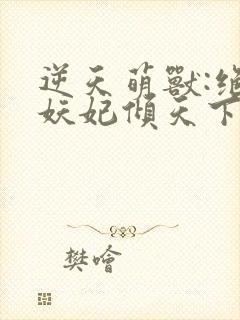 逆天萌獸:絕
妖妃傾天下
樊噲